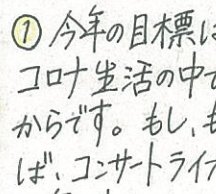 ①今年の目標は
コロナ生活の中で
からです。もし、も
ば、コンサートライブ